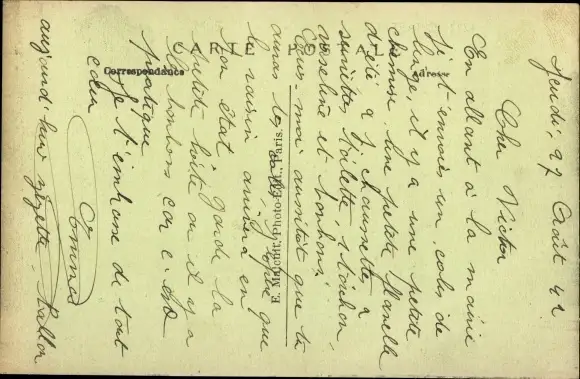 CARTE POSTALE
Correspondance
Adresse
Jeudi, 27 Août 42
Cher Victor
En allant à la mairie
je t'envoies un colis de
linge, il y a une petite
chemise une petite flanelle
d'été, 2 chaussettes, 2
serviettes toilette, 1 torchon,
vaseline et bonbons.
Écris-moi aussitôt que tu
auras les colis, j'espère que
le raisin arrivera en
bon état garde la
petite boîte où il y a
les bonbons car c'est
pratique
Je t'embrasse de tout
cœur
Emma
aujourd'hui
E. Mignon, Photo-Édit., Paris.